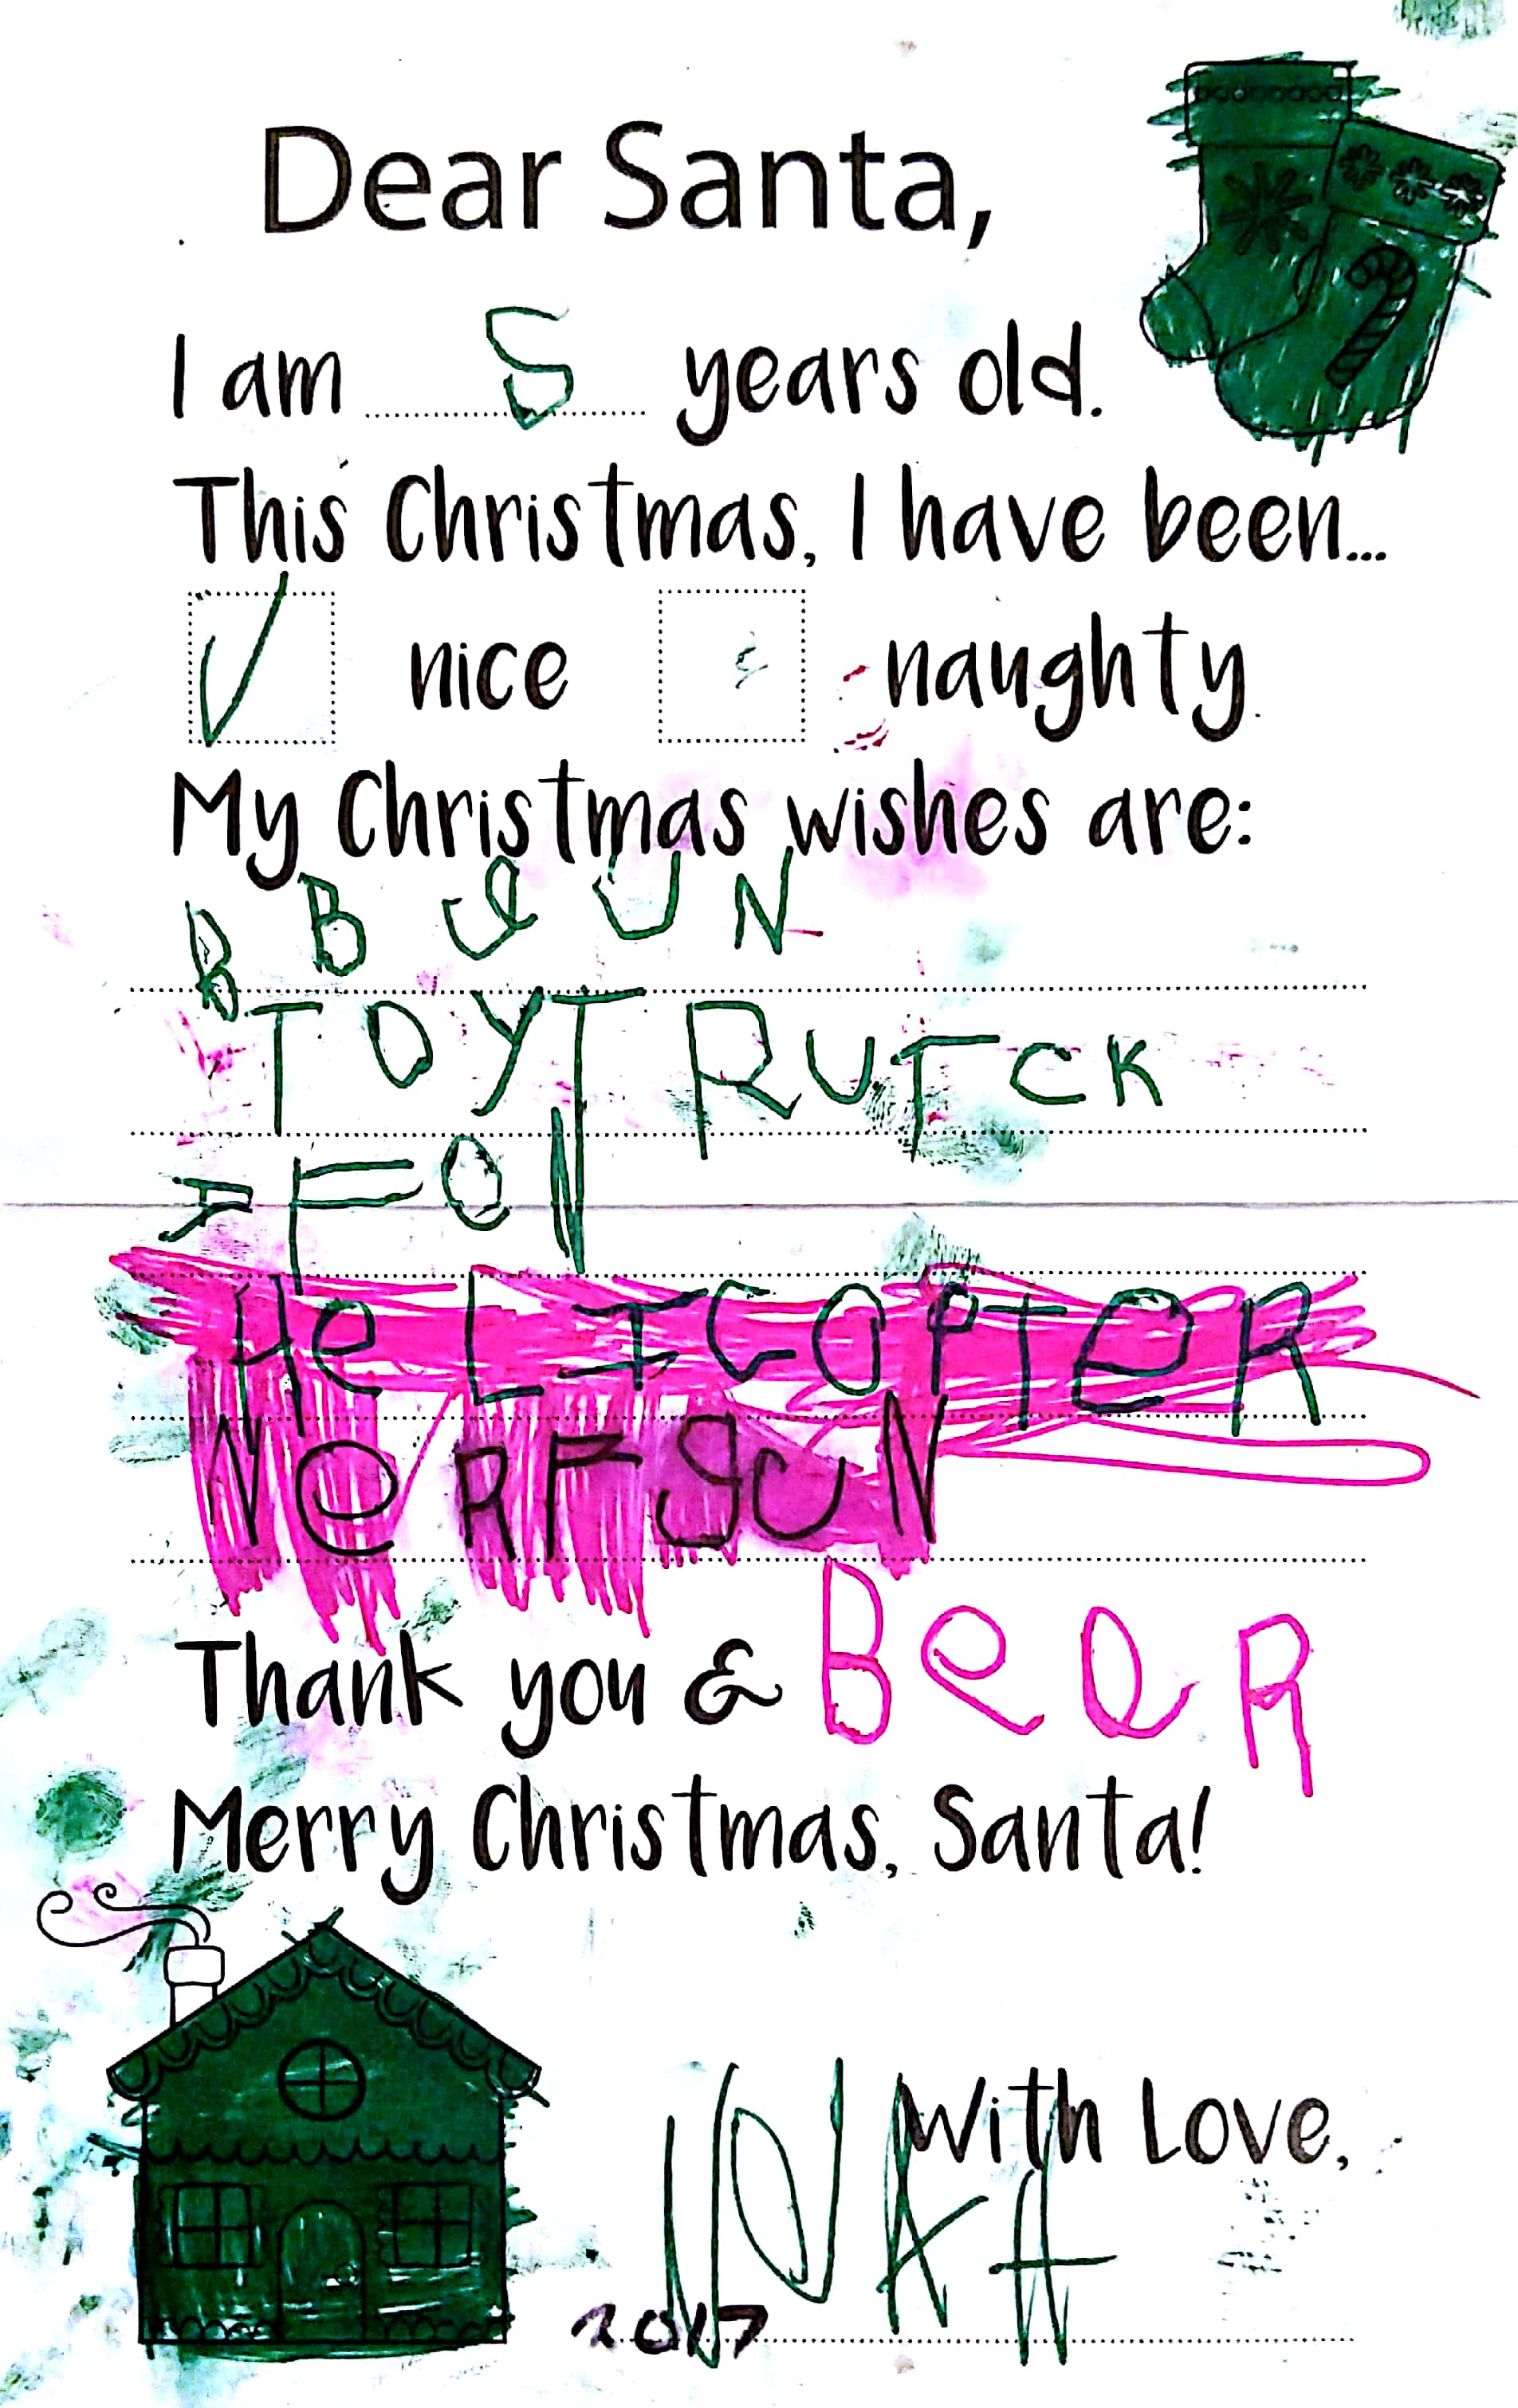 Dear Santa,
I am 5 years old.
This Christmas, I have been...
nice naughty
My Christmas wishes are:
B B G U N
TOY TRUTCK
HeLICOPTeR
NeRF GUN
Thank you & BeeR
Merry Christmas, Santa!
With Love,
NOAH
2017